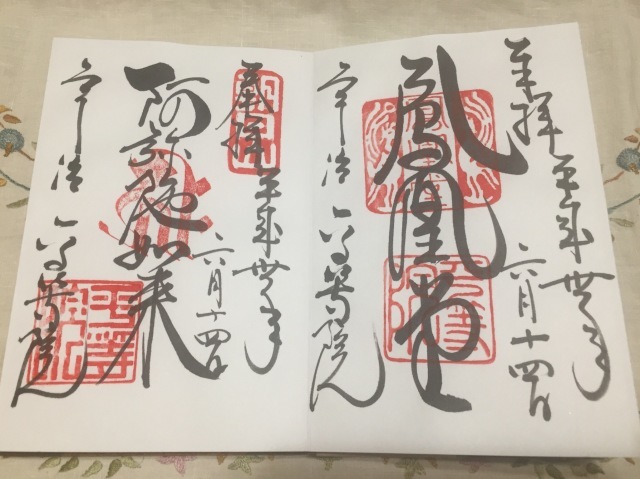 奉拝 平成卅年
六月十四日
鳳凰堂
宇治 平等院
奉拝 平成卅年
六月十四日
阿弥陀如来
宇治 平等院